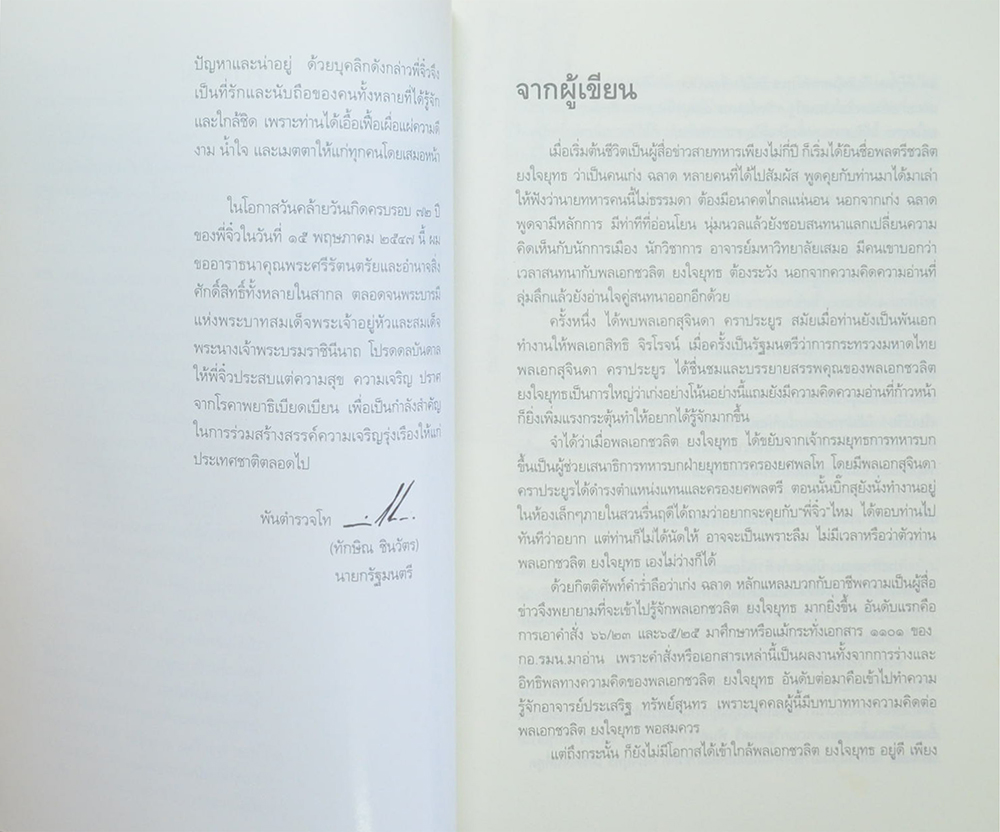 ปัญหาและน่าอยู่ ด้วยบุคลิกดังกล่าวพี่จิ๋วจึง
เป็นที่รักและนับถือของคนทั้งหลายที่ได้รู้จัก
และใกล้ชิด เพราะท่านได้เอื้อเฟื้อเผื่อแผ่ความดี
งาม น้ำใจ และเมตตาให้แก่ทุกคนโดยเสมอหน้า
ในโอกาสวันคล้ายวันเกิดครบรอบ ๗๒ ปี
ของพี่จิ๋วในวันที่ ๑๕ พฤษภาคม ๒๕๔๗ นี้ ผม
ขออาราธนาคุณพระศรีรัตนตรัยและอำนาจสิ่ง
ศักดิ์สิทธิ์ทั้งหลายในสากล ตลอดจนพระบารมี
แห่งพระบาทสมเด็จพระเจ้าอยู่หัวและสมเด็จ
พระนางเจ้าพระบรมราชินีนาถ โปรดดลบันดาล
ให้พี่จิ๋วประสบแต่ความสุข ความเจริญ ปราศ
จากโรคาพยาธิเบียดเบียน เพื่อเป็นกำลังสำคัญ
ในการร่วมสร้างสรรค์ความเจริญรุ่งเรืองให้แก่
ประเทศชาติตลอดไป
พันตำรวจโท
(ทักษิณ ชินวัตร)
นายกรัฐมนตรี
จากผู้เขียน
เมื่อเริ่มต้นชีวิตเป็นผู้สื่อข่าวสายทหารเพียงไม่กี่ปี ก็เริ่มได้ยินชื่อพลตรีชวลิต
ยงใจยุทธ ว่าเป็นคนเก่ง ฉลาด หลายคนที่ได้ไปสัมผัส พูดคุยกับท่านมาได้มาเล่า
ให้ฟังว่านายทหารคนนี้ไม่ธรรมดา ต้องมีอนาคตไกลแน่นอน นอกจากเก่ง ฉลาด
พูดจามีหลักการ มีท่าทีที่อ่อนโยน นุ่มนวลแล้วยังชอบสนทนาแลกเปลี่ยนความ
คิดเห็นกับนักการเมือง นักวิชาการ อาจารย์มหาวิทยาลัยเสมอ มีคนเขาบอกว่า
เวลาสนทนากับพลเอกชวลิต ยงใจยุทธ ต้องระวัง นอกจากความคิดความอ่านที่
ลุ่มลึกแล้วยังอ่านใจคู่สนทนาออกอีกด้วย
ครั้งหนึ่ง ได้พบพลเอกสุจินดา คราประยูร สมัยเมื่อท่านยังเป็นพันเอก
ทำงานให้พลเอกสิทธิ จิรโรจน์ เมื่อครั้งเป็นรัฐมนตรีว่าการกระทรวงมหาดไทย
พลเอกสุจินดา คราประยูร ได้ชื่นชมและบรรยายสรรพคุณของพลเอกชวลิต
ยงใจยุทธเป็นการใหญ่ว่าเก่งอย่างโน้นอย่างนี้แถมยังมีความคิดความอ่านที่ก้าวหน้า
ก็ยิ่งเพิ่มแรงกระตุ้นทำให้อยากได้รู้จักมากขึ้น
จำได้ว่าเมื่อพลเอกชวลิต ยงใจยุทธ ได้ขยับจากเจ้ากรมยุทธการทหารบก
ขึ้นเป็นผู้ช่วยเสนาธิการทหารบกฝ่ายยุทธการครองยศพลโท โดยมีพลเอกสุจินดา
คราประยูรได้ดำรงตำแหน่งแทนและครองยศพลตรี ตอนนั้นบิ๊กสุยังนั่งทำงานอยู่
ในห้องเล็กๆภายในสวนรื่นฤดีได้ถามว่าอยากจะคุยกับ"พี่จิ๋ว"ไหม ได้ตอบท่านไป
ทันทีว่าอยาก แต่ท่านก็ไม่ได้นัดให้ อาจจะเป็นเพราะลืม ไม่มีเวลาหรือว่าตัวท่าน
พลเอกชวลิต ยงใจยุทธ เองไม่ว่างก็ได้
ด้วยกิตติศัพท์คำร่ำลือว่าเก่ง ฉลาด หลักแหลมบวกกับอาชีพความเป็นผู้สื่อ
ข่าวจึงพยายามที่จะเข้าไปรู้จักพลเอกชวลิต ยงใจยุทธ มากยิ่งขึ้น อันดับแรกคือ
การเอาคำสั่ง ๖๖/๒๓ และ๖๕/๒๕ มาศึกษาหรือแม้กระทั่งเอกสาร ๑๑๐๑ ของ
กอ.รมน.มาอ่าน เพราะคำสั่งหรือเอกสารเหล่านี้เป็นผลงานทั้งจากการร่างและ
อิทธิพลทางความคิดของพลเอกชวลิต ยงใจยุทธ อันดับต่อมาคือเข้าไปทำความ
รู้จักอาจารย์ประเสริฐ ทรัพย์สุนทร เพราะบุคคลผู้นี้มีบทบาททางความคิดต่อ
พลเอกชวลิต ยงใจยุทธ พอสมควร
แต่ถึงกระนั้น ก็ยังไม่มีโอกาสได้เข้าใกล้พลเอกชวลิต ยงใจยุทธ อยู่ดี เพียง